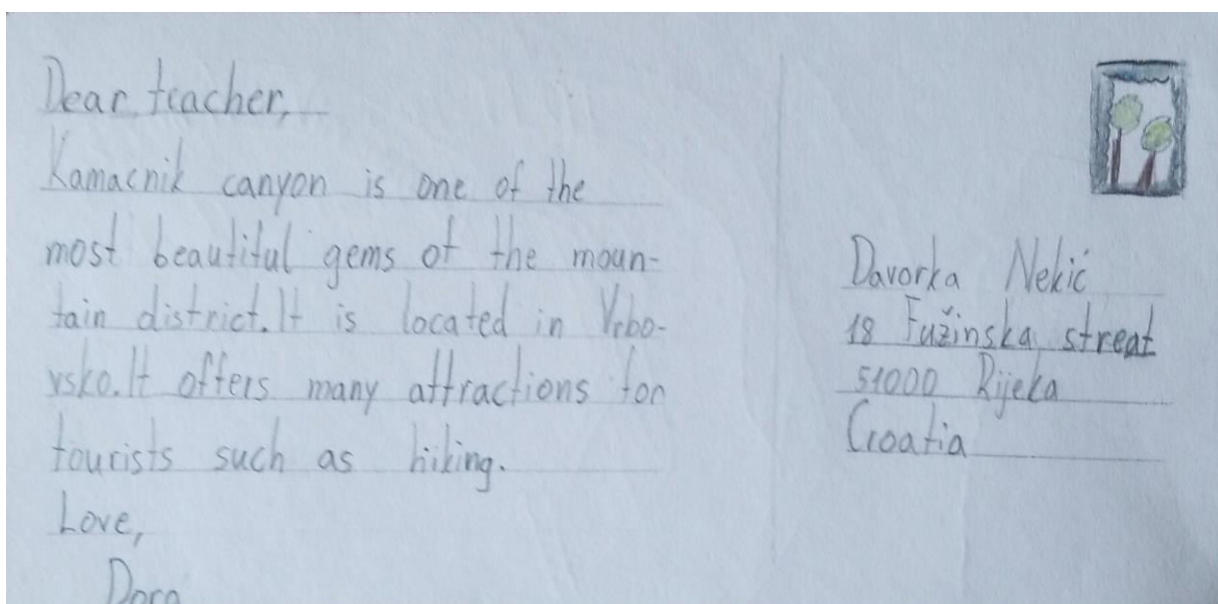 Dear teacher,
Kamacnik canyon is one of the
most beautiful gems of the moun-
tain district. It is located in Vrbo-
vsko. It offers many attractions for
tourists such as hiking.
Love,
Davorka Nekić
18 Fužinska streat
51000 Rijeka
Croatia